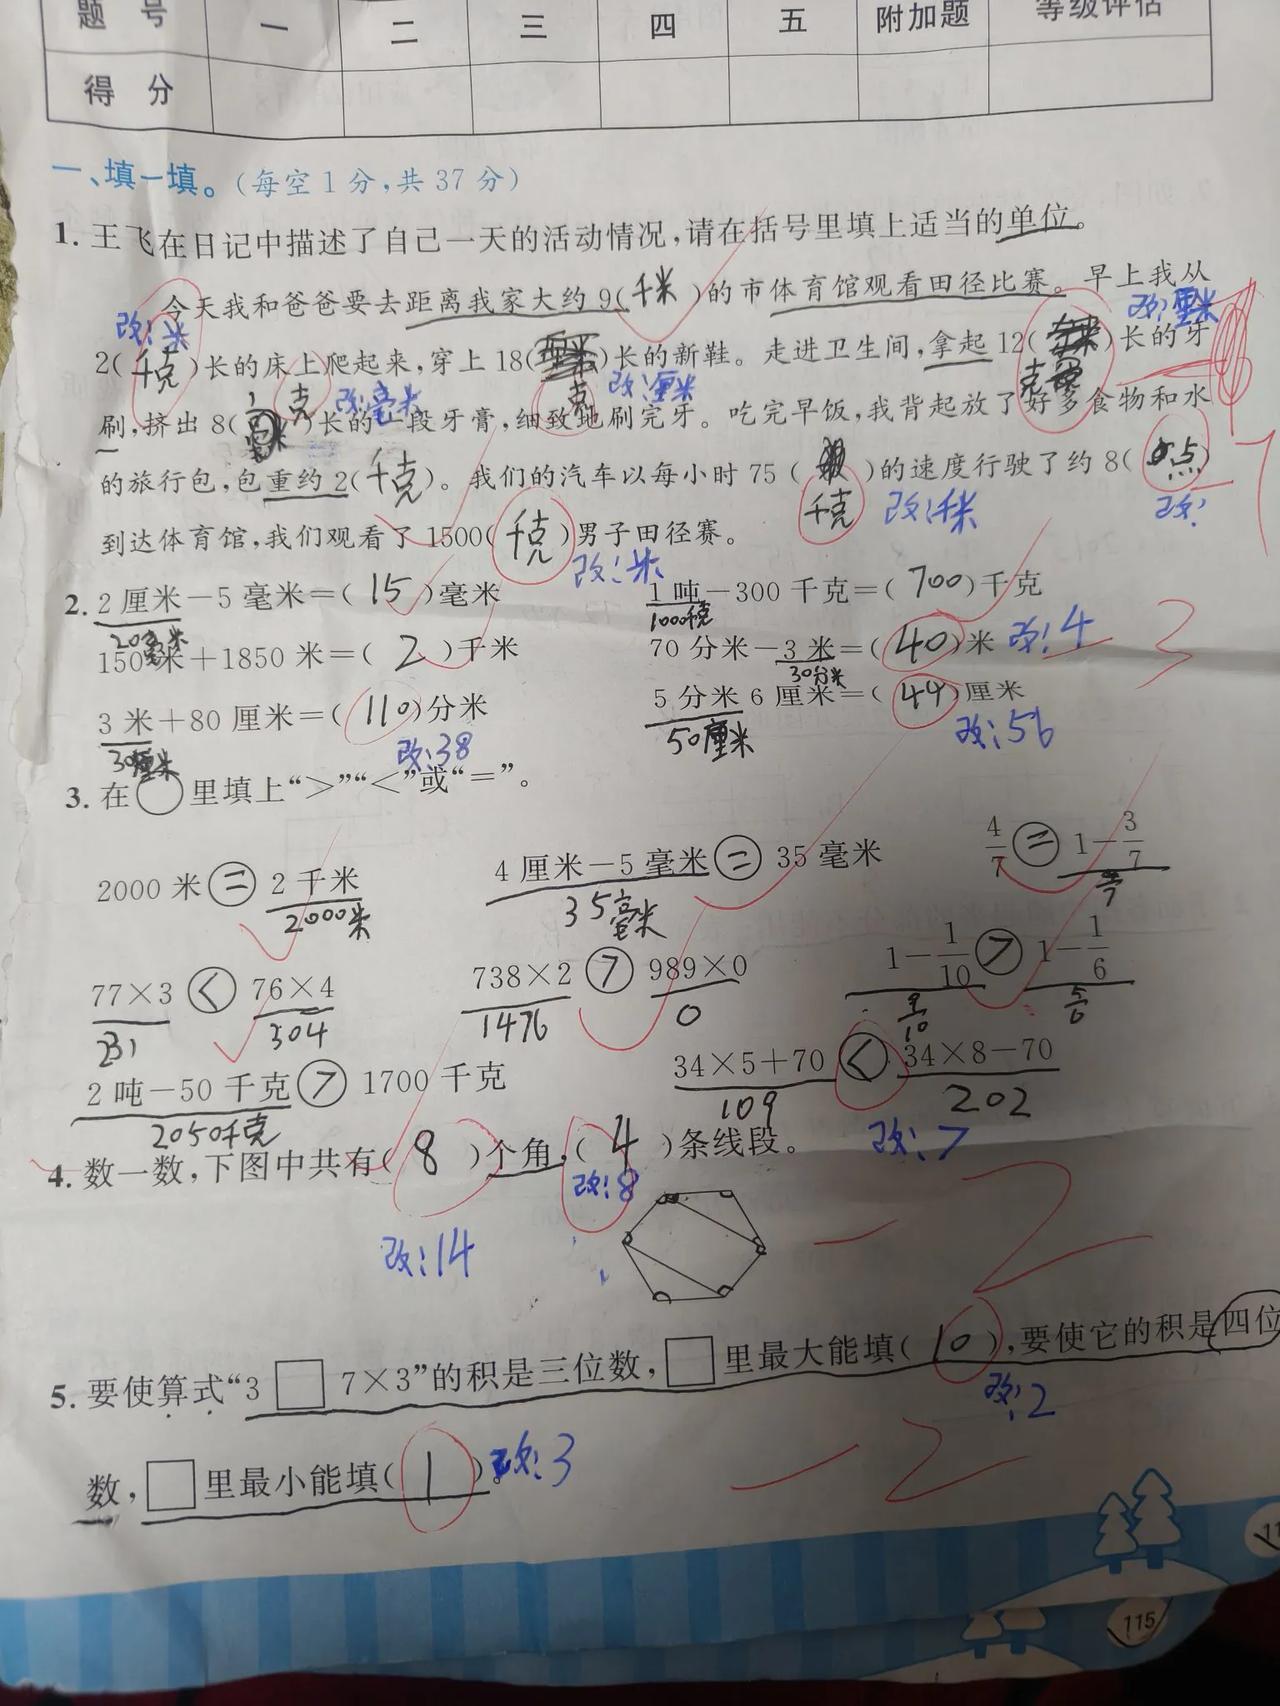 题 号 一 二 三 四 五 附加题 等级评估
得 分
一、填一填。(每空1分,共37分)
1. 王飞在日记中描述了自己一天的活动情况,请在括号里填上适当的单位。
今天我和爸爸要去距离我家大约9(千米)的市体育馆观看田径比赛。早上我从
改:米 改:厘米
2(千克)长的床上爬起来,穿上18( )长的新鞋。走进卫生间,拿起12( )长的牙
克 改:毫米 克 改:厘米 克
刷,挤出8( )长的一段牙膏,细致地刷完牙。吃完早饭,我背起放了好多食物和水
的旅行包,包重约2(千克)。我们的汽车以每小时75( )的速度行驶了约8( 点)
千克 改:千米 改:
到达体育馆,我们观看了1500(千克)男子田径赛。
改:米
2. 2厘米-5毫米=(15)毫米 1吨-300千克=(700)千克
20毫米 1000千克
150米+1850米=(2)千米 70分米-3米=(40)米 改:4 -3
30分米
3米+80厘米=(110)分米 5分米6厘米=(44)厘米
30厘米 改:38 50厘米 改:56
3. 在○里填上“>”“<”或“=”。
2000米=2千米 4厘米-5毫米=35毫米 4/7=1-3/7
2000米 35毫米
77×3<76×4 738×2>989×0 1-1/10>1-1/6
231 304 1476 0 9/10 5/6
2吨-50千克>1700千克 34×5+70<34×8-70
2050千克 109 202
改:>
4. 数一数,下图中共有(8)个角,(4)条线段。
改:14 改:8 -2
5. 要使算式“3□7×3”的积是三位数,□里最大能填(10),要使它的积是四位
改:2
数,□里最小能填(1)。改:3 -2
11
115